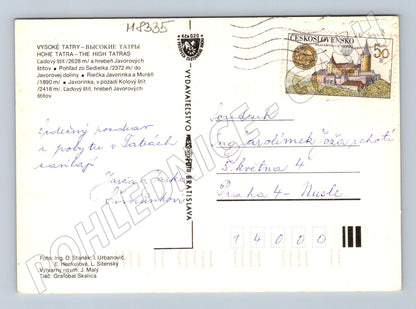 M8335
VYSOKÉ TATRY – ВЫСОКИЕ ТАТРЫ
HOHE TATRA – THE HIGH TATRAS
Ľadový štít /2628 m/ a hrebeň Javorových
štítov • Pohľad zo Sedielka /2372 m/ do
Javorovej doliny • Riečka Javorinka a Muráň
/1890 m/ • Javorinka, v pozadí Kolový štít
/2418 m/, Ľadový štít, hrebeň Javorových
štítov
ČESKOSLOVENSKO
50
VYDAVATEĽSTVO BRATISLAVA
Srdečný pozdrav
z pobytu v Tatrách
zasílají
Soudruh
Ing
5. května 4
Praha 4 - Nusle
14000
Foto: Ing. O. Štanák, I. Urbanovič,
E. Heckelová, L. Sitenský
Výtvarný návrh: J. Malý
Tlač: Grafobal Skalica
POHLEDNICE